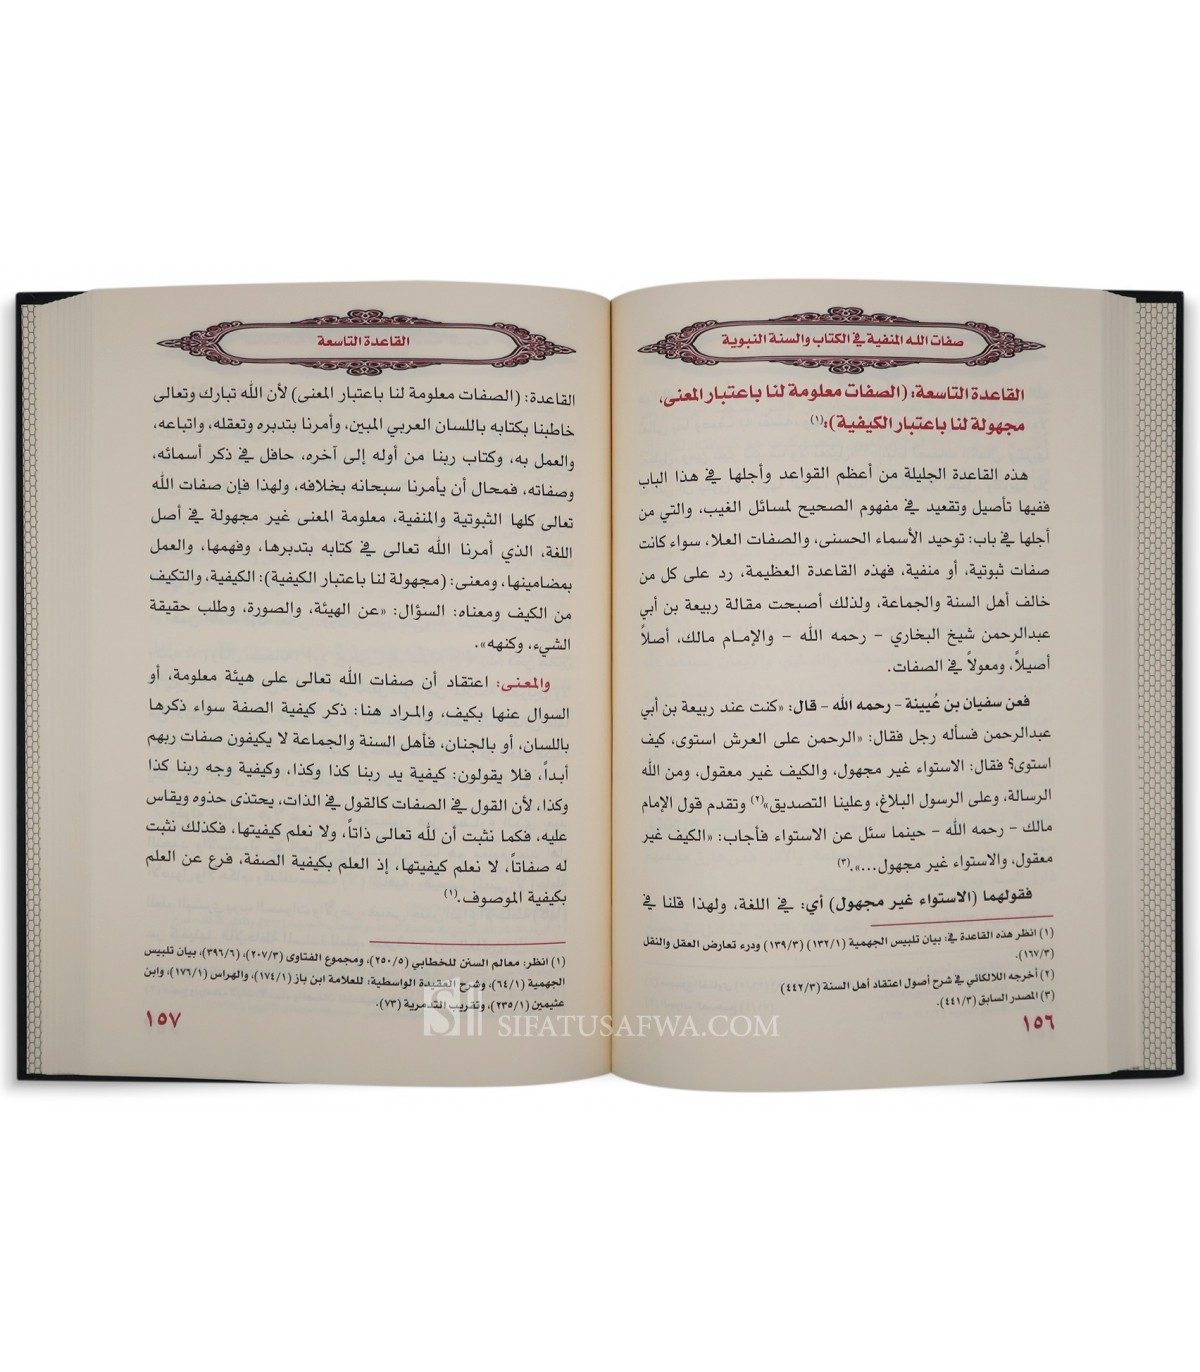 صفات الله المنفية في الكتاب والسنة النبوية
القاعدة التاسعة: (الصفات معلومة لنا باعتبار المعنى،
مجهولة لنا باعتبار الكيفية):(١)
هذه القاعدة الجليلة من أعظم القواعد وأجلها في هذا الباب
ففيها تأصيل وتقعيد في مفهوم الصحيح لمسائل الغيب، والتي من
أجلها في باب: توحيد الأسماء الحسنى، والصفات العلا، سواء كانت
صفات ثبوتية، أو منفية، فهذه القاعدة العظيمة، رد على كل من
خالف أهل السنة والجماعة، ولذلك أصبحت مقالة ربيعة بن أبي
عبدالرحمن شيخ البخاري - رحمه الله - والإمام مالك، أصلاً
أصيلاً، ومعولاً في الصفات.
فعن سفيان بن عُيينة - رحمه الله - قال: «كنت عند ربيعة بن أبي
عبدالرحمن فسأله رجل فقال: «الرحمن على العرش استوى، كيف
استوى؟ فقال: الاستواء غير مجهول، والكيف غير معقول، ومن الله
الرسالة، وعلى الرسول البلاغ، وعلينا التصديق»(٢) وتقدم قول الإمام
مالك - رحمه الله - حينما سئل عن الاستواء فأجاب: «الكيف غير
معقول، والاستواء غير مجهول...».(٣)
فقولهما (الاستواء غير مجهول) أي: في اللغة، ولهذا قلنا في
(١) انظر هذه القاعدة في: بيان تلبيس الجهمية (١٣٢/١) (١٣٩/٣) ودرء تعارض العقل والنقل
(١٦٧/٣).
(٢) أخرجه اللالكائي في شرح أصول اعتقاد أهل السنة (٤٤٢/٣)
(٣) المصدر السابق (٤٤١/٣).
١٥٦
القاعدة التاسعة
القاعدة: (الصفات معلومة لنا باعتبار المعنى) لأن الله تبارك وتعالى
خاطبنا بكتابه باللسان العربي المبين، وأمرنا بتدبره وتعقله، واتباعه،
والعمل به، وكتاب ربنا من أوله إلى آخره، حافل في ذكر أسمائه،
وصفاته، فمحال أن يأمرنا سبحانه بخلافه، ولهذا فإن صفات الله
تعالى كلها الثبوتية والمنفية، معلومة المعنى غير مجهولة في أصل
اللغة، الذي أمرنا الله تعالى في كتابه بتدبرها، وفهمها، والعمل
بمضامينها، ومعنى: (مجهولة لنا باعتبار الكيفية): الكيفية، والتكيف
من الكيف ومعناه: السؤال: «عن الهيئة، والصورة، وطلب حقيقة
الشيء، وكنهه».
والمعنى: اعتقاد أن صفات الله تعالى على هيئة معلومة، أو
السوال عنها بكيف، والمراد هنا: ذكر كيفية الصفة سواء ذكرها
باللسان، أو بالجنان، فأهل السنة والجماعة لا يكيفون صفات ربهم
أبداً، فلا يقولون: كيفية يد ربنا كذا وكذا، وكيفية وجه ربنا كذا
وكذا، لأن القول في الصفات كالقول في الذات، يحتذى حذوه ويقاس
عليه، فكما نثبت أن لله تعالى ذاتاً، ولا نعلم كيفيتها، فكذلك نثبت
له صفاتاً، لا نعلم كيفيتها، إذ العلم بكيفية الصفة، فرع عن العلم
بكيفية الموصوف.(١)
(١) انظر: معالم السنن للخطابي (٢٥٠/٥)، ومجموع الفتاوى (٢٠٧/٣)، (٣٩٦/٦)، بيان تلبيس
الجهمية (٦٤/١)، وشرح العقيدة الواسطية: للعلامة ابن باز (١٧٤/١)، والهراس (١٧٦/١)، وابن
عثيمين (٢٣٥/١)، وتقريب التدمرية (٧٣).
١٥٧
SIFATUSAFWA.COM